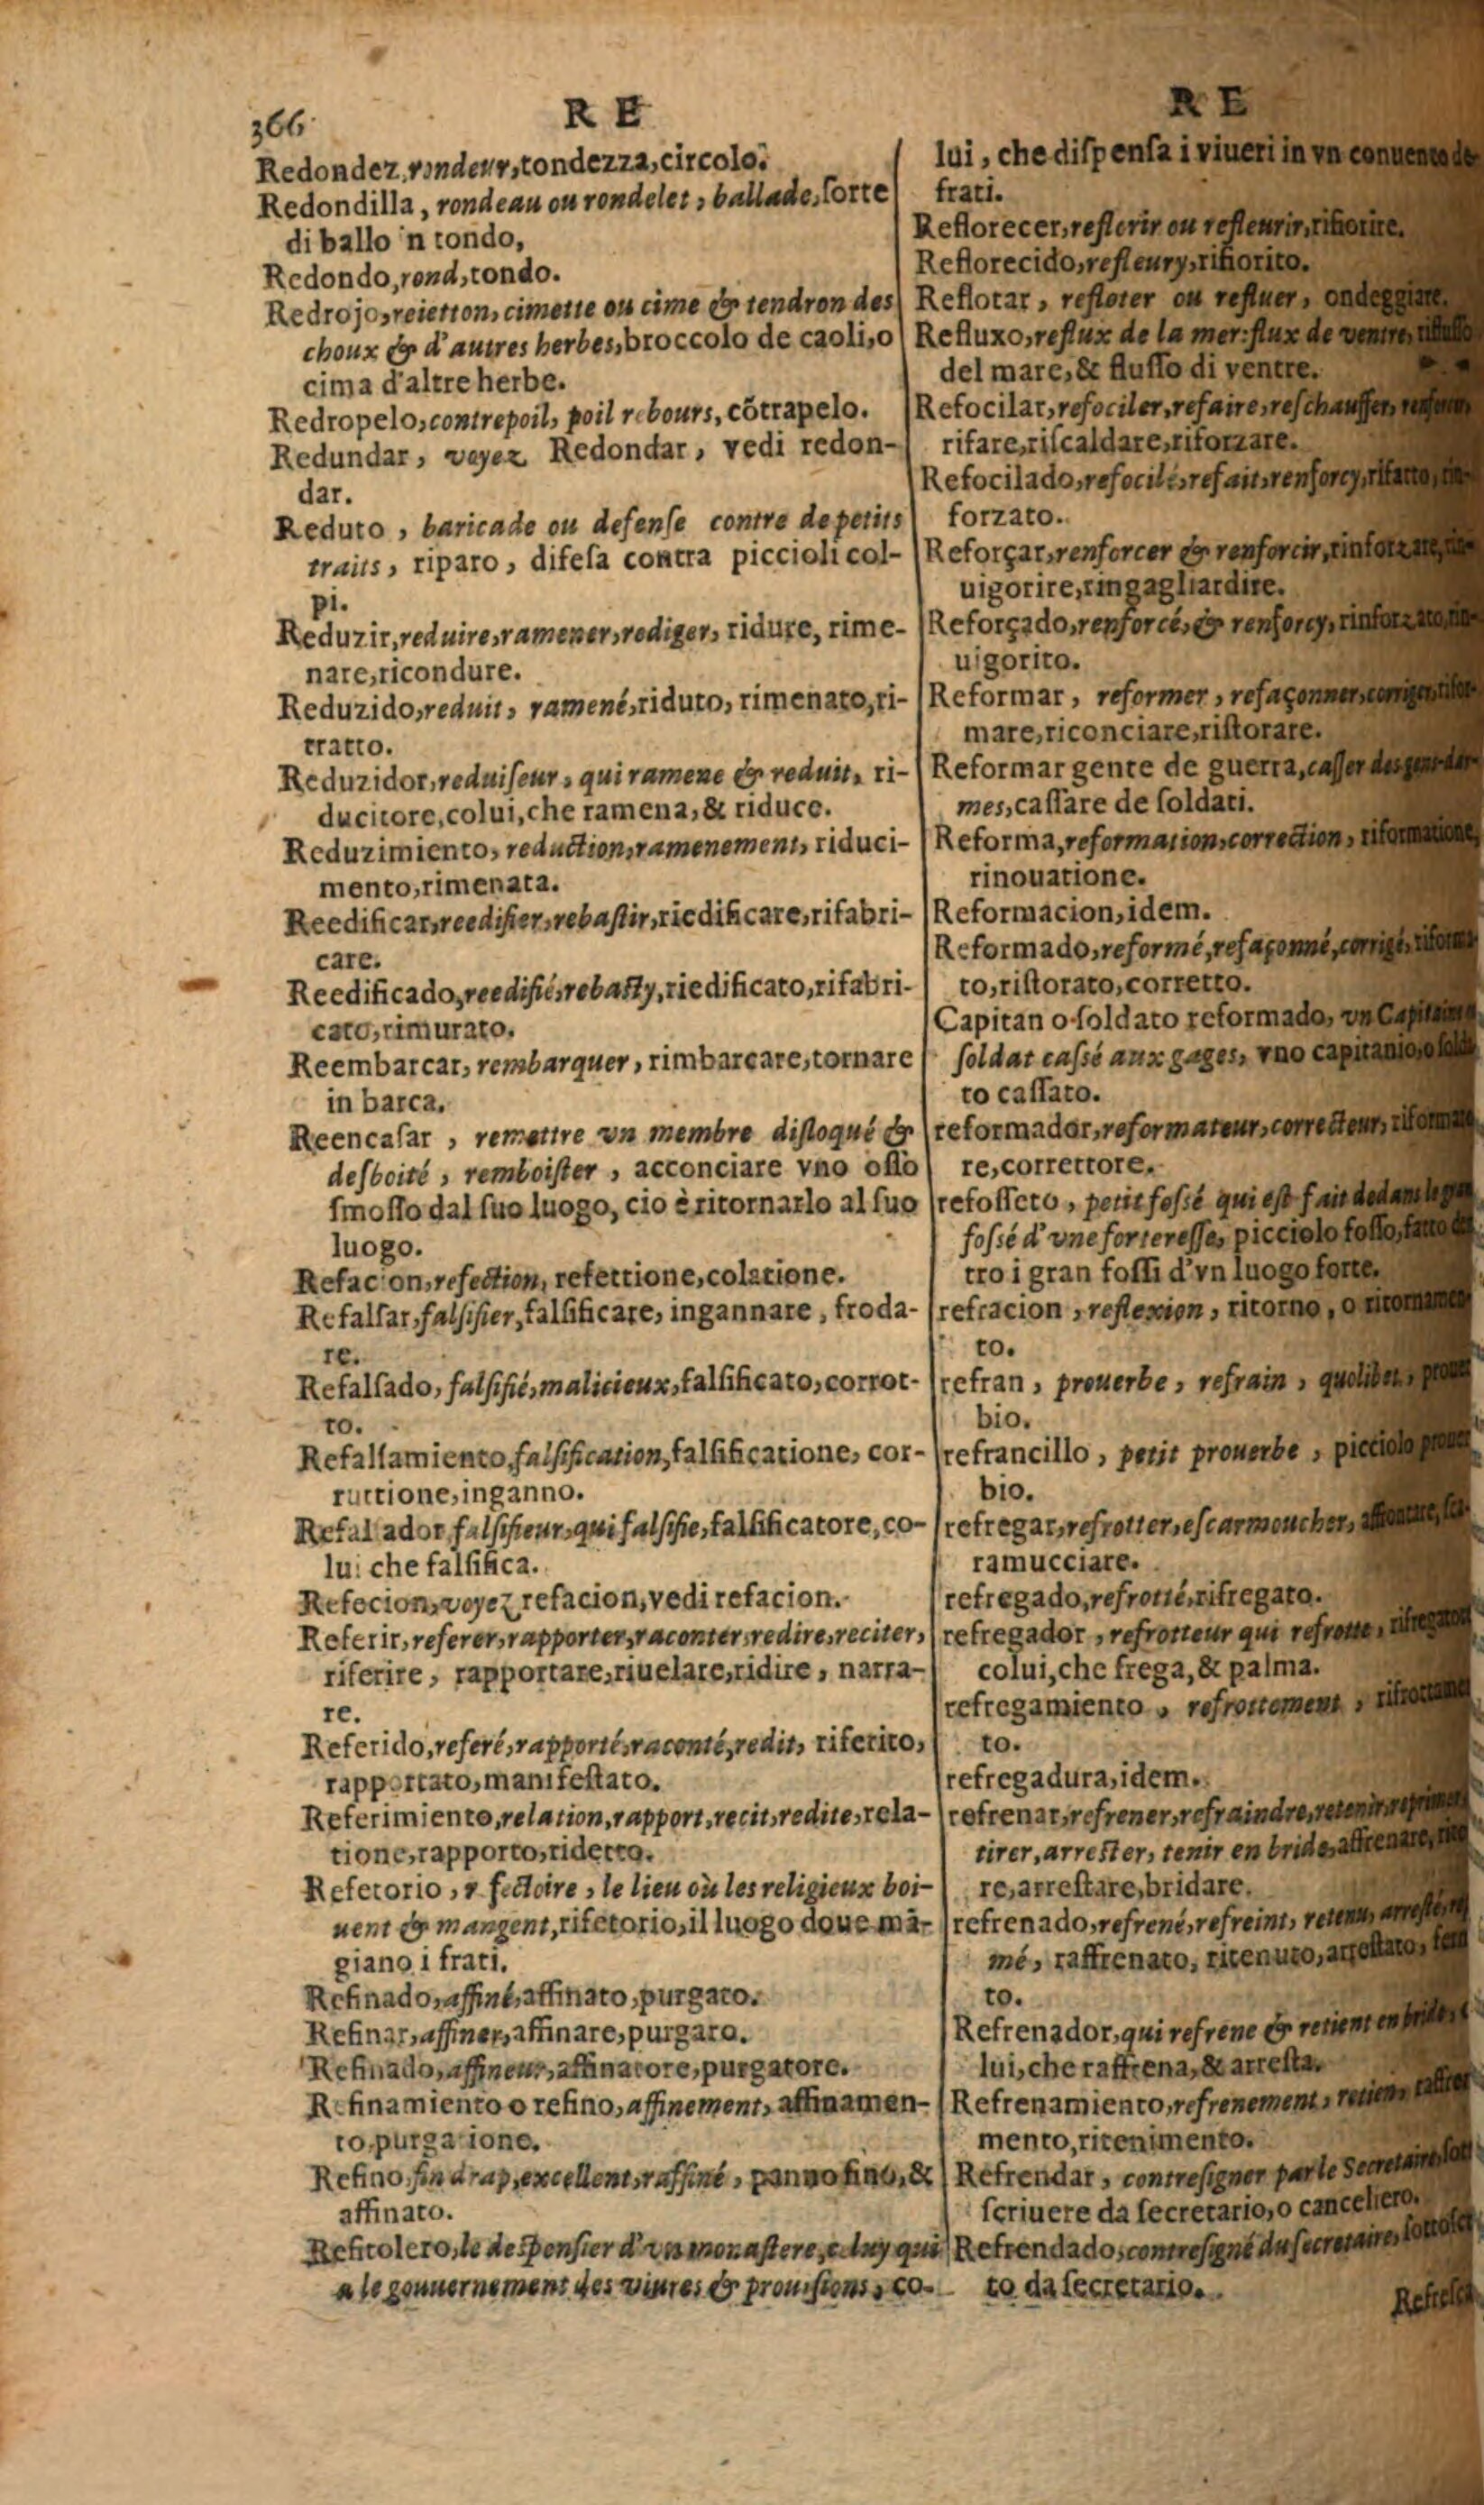 366
R E
Redondez, rondeur, tondezza, circolo.
Redondilla, rondeau ou rondelet, ballade, ſorte
di ballo 'n tondo,
Redondo, rond, tondo.
Redrojo, reietton, cimette ou cime & tendron des
choux & d'autres herbes, broccolo de caoli, o
cima d'altre herbe.
Redropelo, contrepoil, poil rebours, cõtrapelo.
Redundar, voyez Redondar, vedi redon-
dar.
Reduto, baricade ou defenſe contre de petits
traits, riparo, difeſa contra piccioli col-
pi.
Reduzir, reduire, ramener, rediger, ridure, rime-
nare, ricondure.
Reduzido, reduit, ramené, riduto, rimenato, ri-
tratto.
Reduzidor, reduiſeur, qui ramene & reduit, ri-
ducitore, colui, che ramena, & riduce.
Reduzimiento, reduction, ramenement, riduci-
mento, rimenata.
Reedificar, reedifier, rebaſtir, riedificare, rifabri-
care.
Reedificado, reedifié, rebaſty, riedificato, rifabri-
cato, rimurato.
Reembarcar, rembarquer, rimbarcare, tornare
in barca.
Reencaſar, remettre vn membre diſloqué &
deſboité, remboiſter, acconciare vno oſſo
ſmoſſo dal ſuo luogo, cio è ritornarlo al ſuo
luogo.
Refacion, refection, refettione, colatione.
Refalſar, falſifier, falſificare, ingannare, froda-
re.
Refalſado, falſifié, malicieux, falſificato, corrot-
to.
Refalſamiento, falſification, falſificatione, cor-
ruttione, inganno.
Refalſador, falſifieur, qui falſifie, falſificatore, co-
lui che falſifica.
Refecion, voyez refacion, vedi refacion.
Referir, referer, rapporter, raconter, redire, reciter,
riferire, rapportare, riuelare, ridire, narra-
re.
Referido, referé, rapporté, raconté, redit, riferito,
rapportato, manifeſtato.
Referimiento, relation, rapport, recit, redite, rela-
tione, rapporto, ridetto.
Refetorio, refectoire, le lieu où les religieux boi-
uent & mangent, rifetorio, il luogo doue mā-
giano i frati.
Refinado, affiné, affinato, purgato.
Refinar, affiner, affinare, purgare.
Refinado, affineur, affinatore, purgatore.
Refinamiento o refino, affinement, affinamen-
to, purgatione.
Refino, fin drap, excellent, raffiné, panno fino, &
affinato.
Refitolero, le deſpenſier d'vn monaſtere, celuy qui
a le gouuernement des viures & prouiſions, co-
R E
lui, che diſpenſa i viueri in vn conuento de
frati.
Reflorecer, reflorir ou refleurir, rifiorire.
Reflorecido, refleury, rifiorito.
Reflotar, refloter ou refluer, ondeggiare.
Refluxo, reflux de la mer: flux de ventre, rifluſſo
del mare, & fluſſo di ventre.
Refocilar, refociler, refaire, reſchauffer,
rifare, riſcaldare, riforzare.
Refocilado, refocilé, refait, renforcy, rifatto, rin-
forzato.
Reforçar, renforcer & renforcir, rinforzare, rin-
uigorire, ringagliardire.
Reforçado, renforcé, & renforcy, rinforzato, rin-
uigorito.
Reformar, reformer, refaçonner, corriger, rifor-
mare, riconciare, riſtorare.
Reformar gente de guerra, caſſer des gens-dar-
mes, caſſare de ſoldati.
Reforma, reformation, correction, riformatione,
rinouatione.
Reformacion, idem.
Reformado, reformé, refaçonné, corrigé, riforma-
to, riſtorato, corretto.
Capitan o ſoldato reformado, vn Capitaine
ſoldat caſſé aux gages, vno capitanio, o ſolda
to caſſato.
reformador, reformateur, correcteur, riformato
re, correttore.
refoſſeto, petit foſſé qui eſt fait dedans le gran
foſſé d'vne fortereſſe, picciolo foſſo, fatto den
tro i gran foſſi d'vn luogo forte.
refracion, reflexion, ritorno, o ritornamen
to.
refran, prouerbe, refrain, quolibet, prouer
bio.
refrancillo, petit prouerbe, picciolo prouer
bio.
refregar, refrotter, eſcarmoucher, affrontare, ſca-
ramucciare.
refregado, refrotté, rifregato.
refregador, refrotteur qui refrotte, rifregatore
colui, che frega, & palma.
refregamiento, refrottement, rifrottamen
to.
refregadura, idem.
refrenar, refrener, refraindre, retenir, reprimer
tirer, arreſter, tenir en bride, affrenare, rite
re, arreſtare, bridare.
refrenado, refrené, refreint, retenu, arreſté,
mé, raffrenato, ritenuto, arreſtato,
to.
Refrenador, qui refrene & retient en bride,
lui, che raffrena, & arreſta.
Refrenamiento, refrenement, retien, raffrena
mento, ritenimento.
Refrendar, contreſigner par le Secretaire, ſott
ſcriuere da ſecretario, o canceliero.
Refrendado, contreſigné du ſecretaire, ſottoſcr
to da ſecretario.
Refreſca